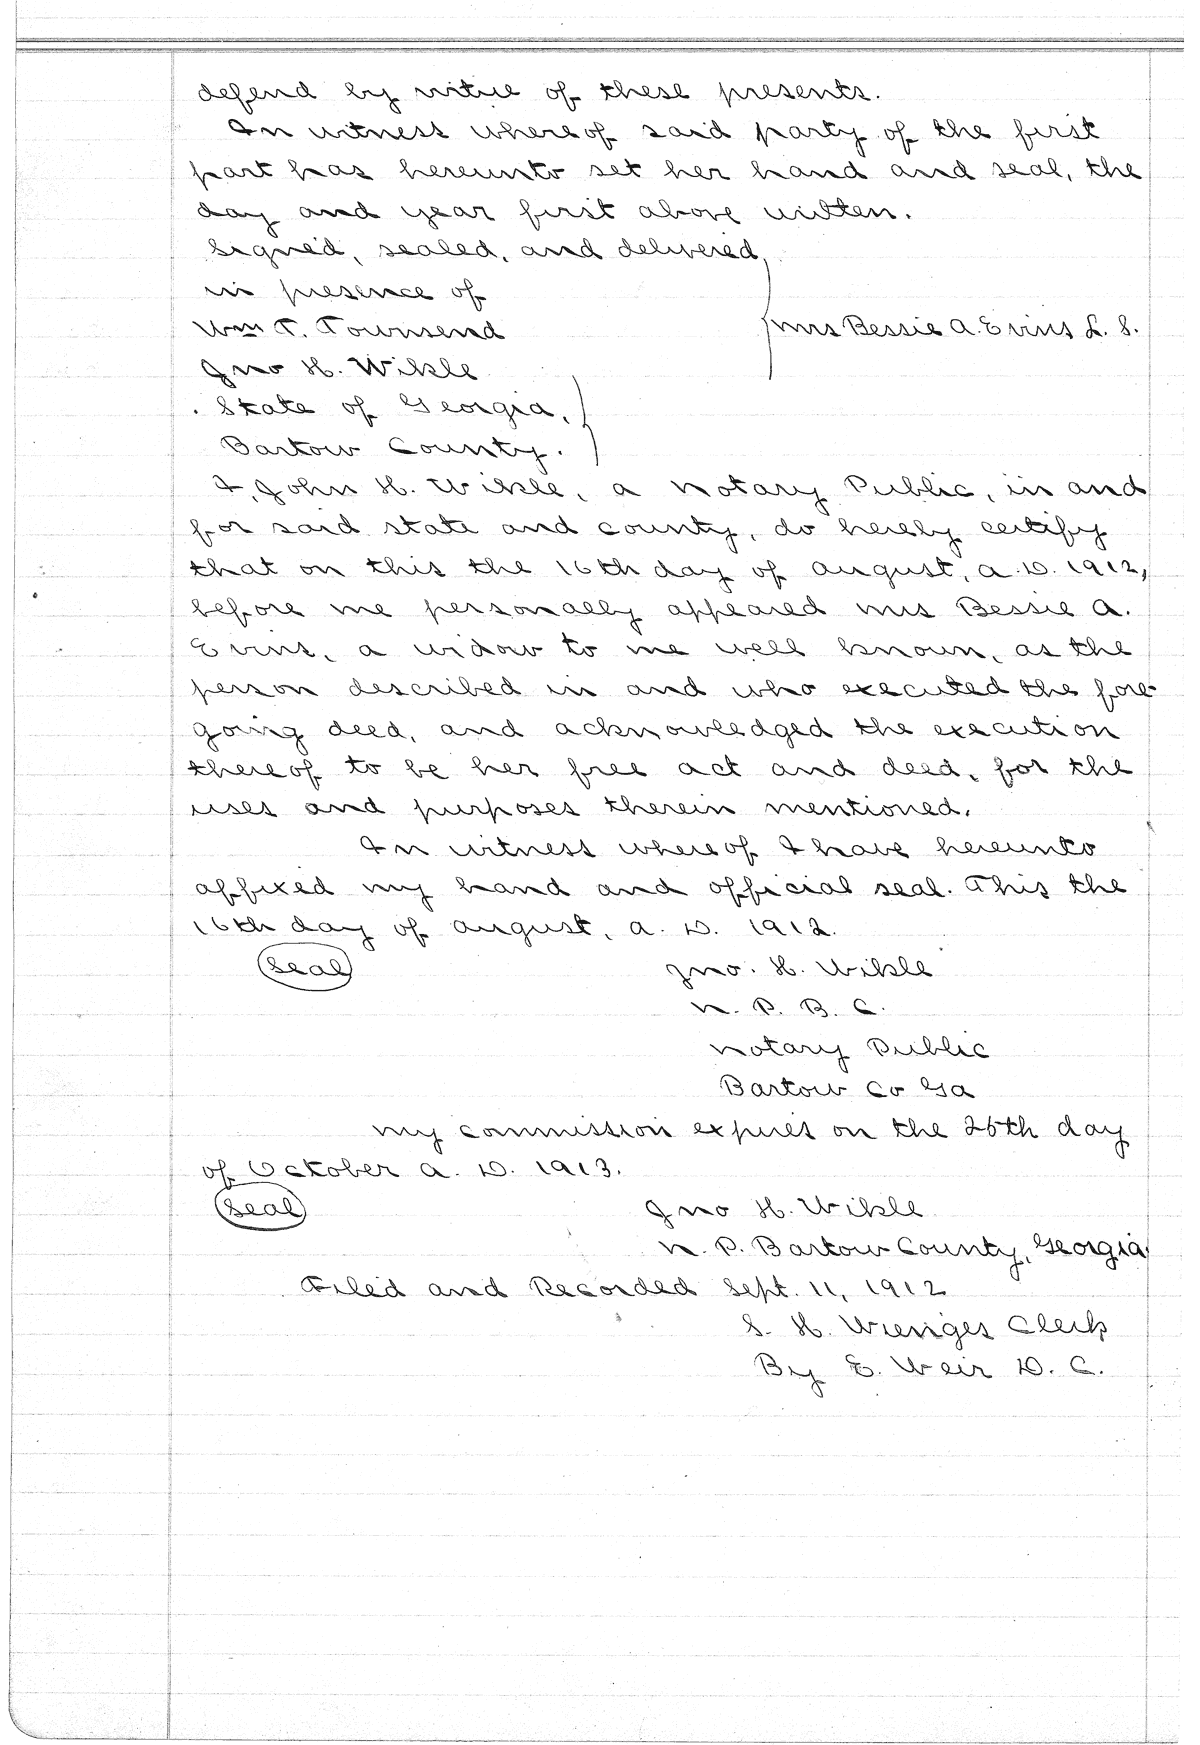 defend by virtue of these presents.
In witness whereof said party of the first
part has hereunto set her hand and seal, the
day and year first above written.
Signed, sealed, and delivered
in presence of
Wm T. Townsend
Mrs Bessie A. Evins L. S.
Jno H. Wikle
State of Georgia,
Bartow County.
I, John H. Wikle, a Notary Public, in and
for said state and county, do hereby certify
that on this the 16th day of August, A.D. 1912,
before me personally appeared Mrs Bessie A.
Evins, a widow to me well known, as the
person described in and who executed the fore-
going deed, and acknowledged the execution
thereof to be her free act and deed, for the
uses and purposes therein mentioned.
In witness whereof I have hereunto
affixed my hand and official seal. This the
16th day of August, A. D. 1912.
Seal
Jno. H. Wikle
N. P. B. C.
Notary Public
Bartow Co Ga
My commission expires on the 26th day
of October A. D. 1913.
Seal
Jno H. Wikle
N. P. Bartow County, Georgia
Filed and Recorded Sept. 11, 1912
S. H. Wienges Clerk
By E. Weir D. C.